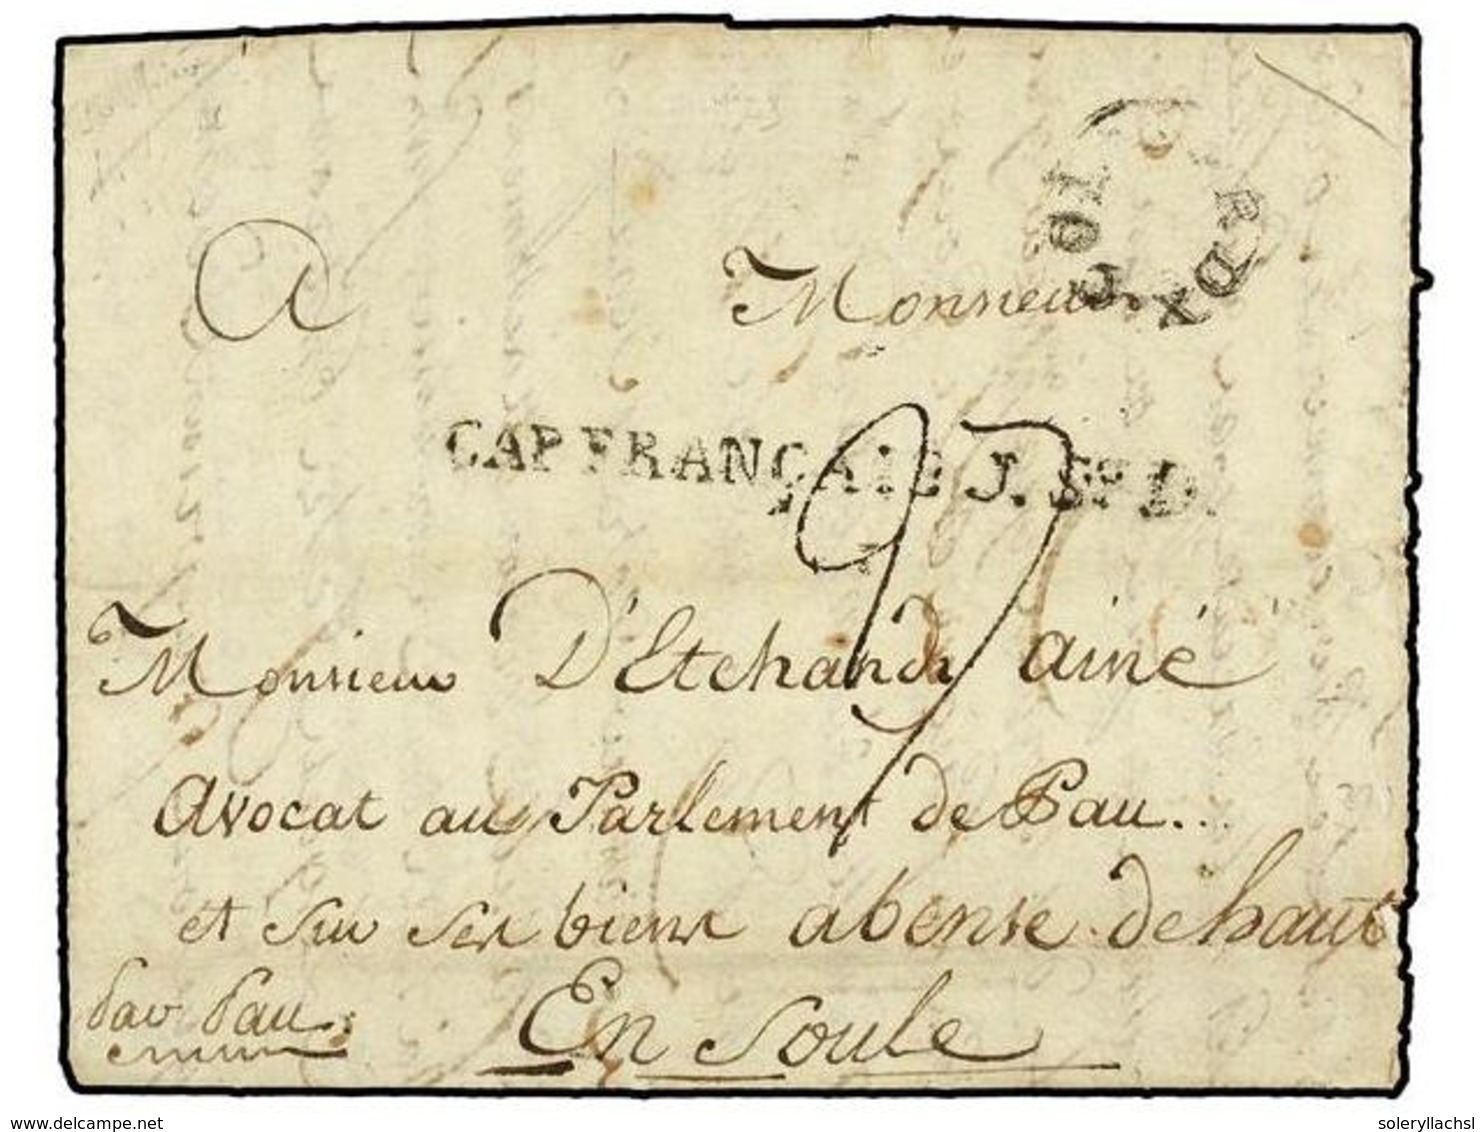 COL
R DX
A Monsieur
CAP FRANÇAIS J. St D.
27
Monsieur D'Etchandi ainé
Avocat au Parlement de Pau...
et sur ses biens abense de haut
par Pau
En Soule
delcampe.net
soleryllachsl